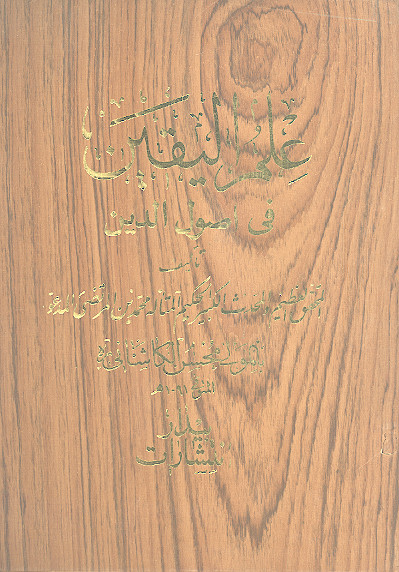 علم اليقين
في اصول الدين
تأليف
المحقق العظيم والمحدث الكبير والحكيم المتأله محمد بن المرتضى المدعو
بالمولى محسن الكاشاني
المتوفى ١٠٩١هـ
بيدار
انتشارات